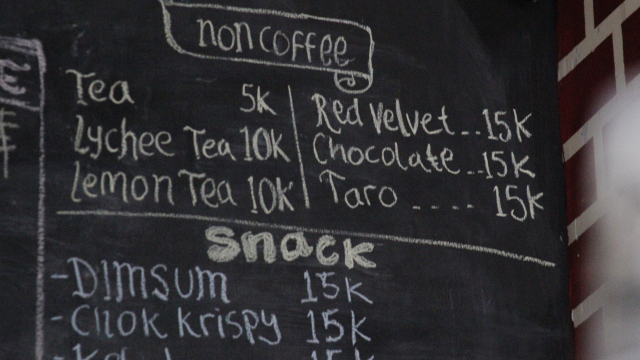 non coffee
Tea 5K
Lychee Tea 10K
Lemon Tea 10K
Red Velvet...15K
Chocolate...15K
Taro ..... 15K
Snack
-DIMSUM 15K
-CHOK KRISPY 15K
15K